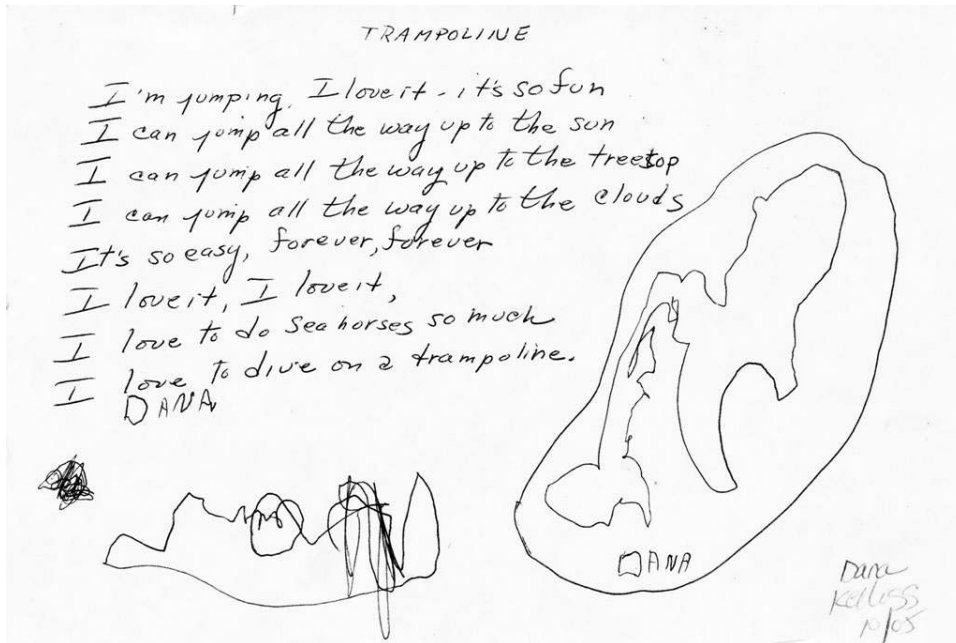 TRAMPOLINE
I'm jumping, I love it - it's so fun
I can jump all the way up to the sun
I can jump all the way up to the treetop
I can jump all the way up to the clouds
It's so easy, forever, forever
I love it, I love it,
I love to do Seahorses so much
I love to dive on a trampoline.
DANA
DANA
Dana
10/05